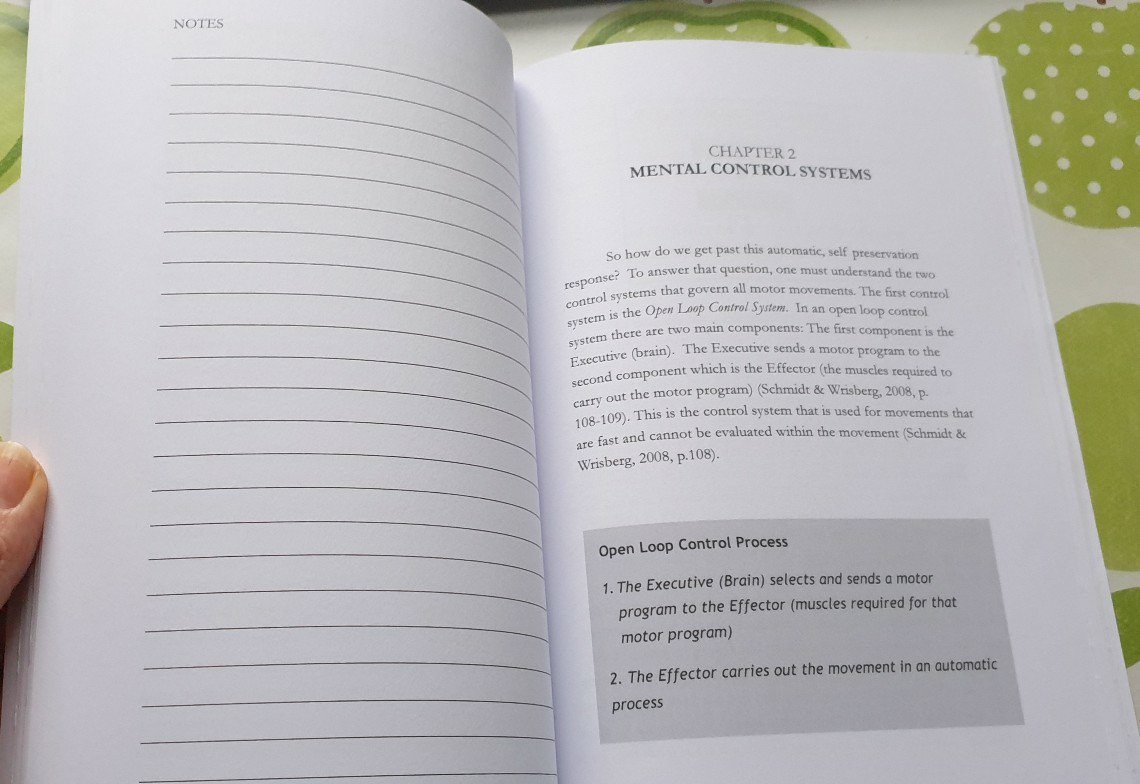 NOTES
CHAPTER 2
MENTAL CONTROL SYSTEMS
So how do we get past this automatic, self preservation
response? To answer that question, one must understand the two
control systems that govern all motor movements. The first control
system is the Open Loop Control System. In an open loop control
system there are two main components: The first component is the
Executive (brain). The Executive sends a motor program to the
second component which is the Effector (the muscles required to
carry out the motor program) (Schmidt & Wrisberg, 2008, p.
108-109). This is the control system that is used for movements that
are fast and cannot be evaluated within the movement (Schmidt &
Wrisberg, 2008, p.108).
Open Loop Control Process
1. The Executive (Brain) selects and sends a motor
program to the Effector (muscles required for that
motor program)
2. The Effector carries out the movement in an automatic
process